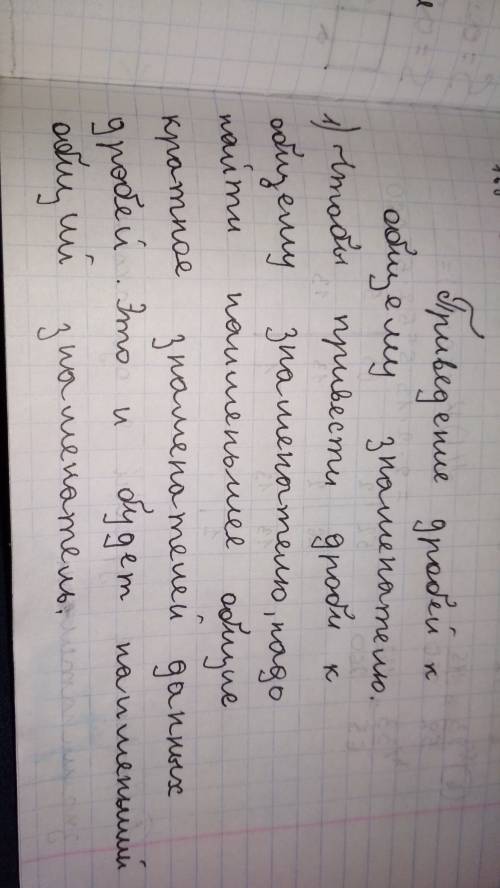 Приведение дробей к
общему знаменателю.
1) Чтобы привести дроби к
общему знаменателю, надо
найти наименьшее общие
кратное знаменателей данных
дробей. Это и будет наименьший
общий знаменатель.